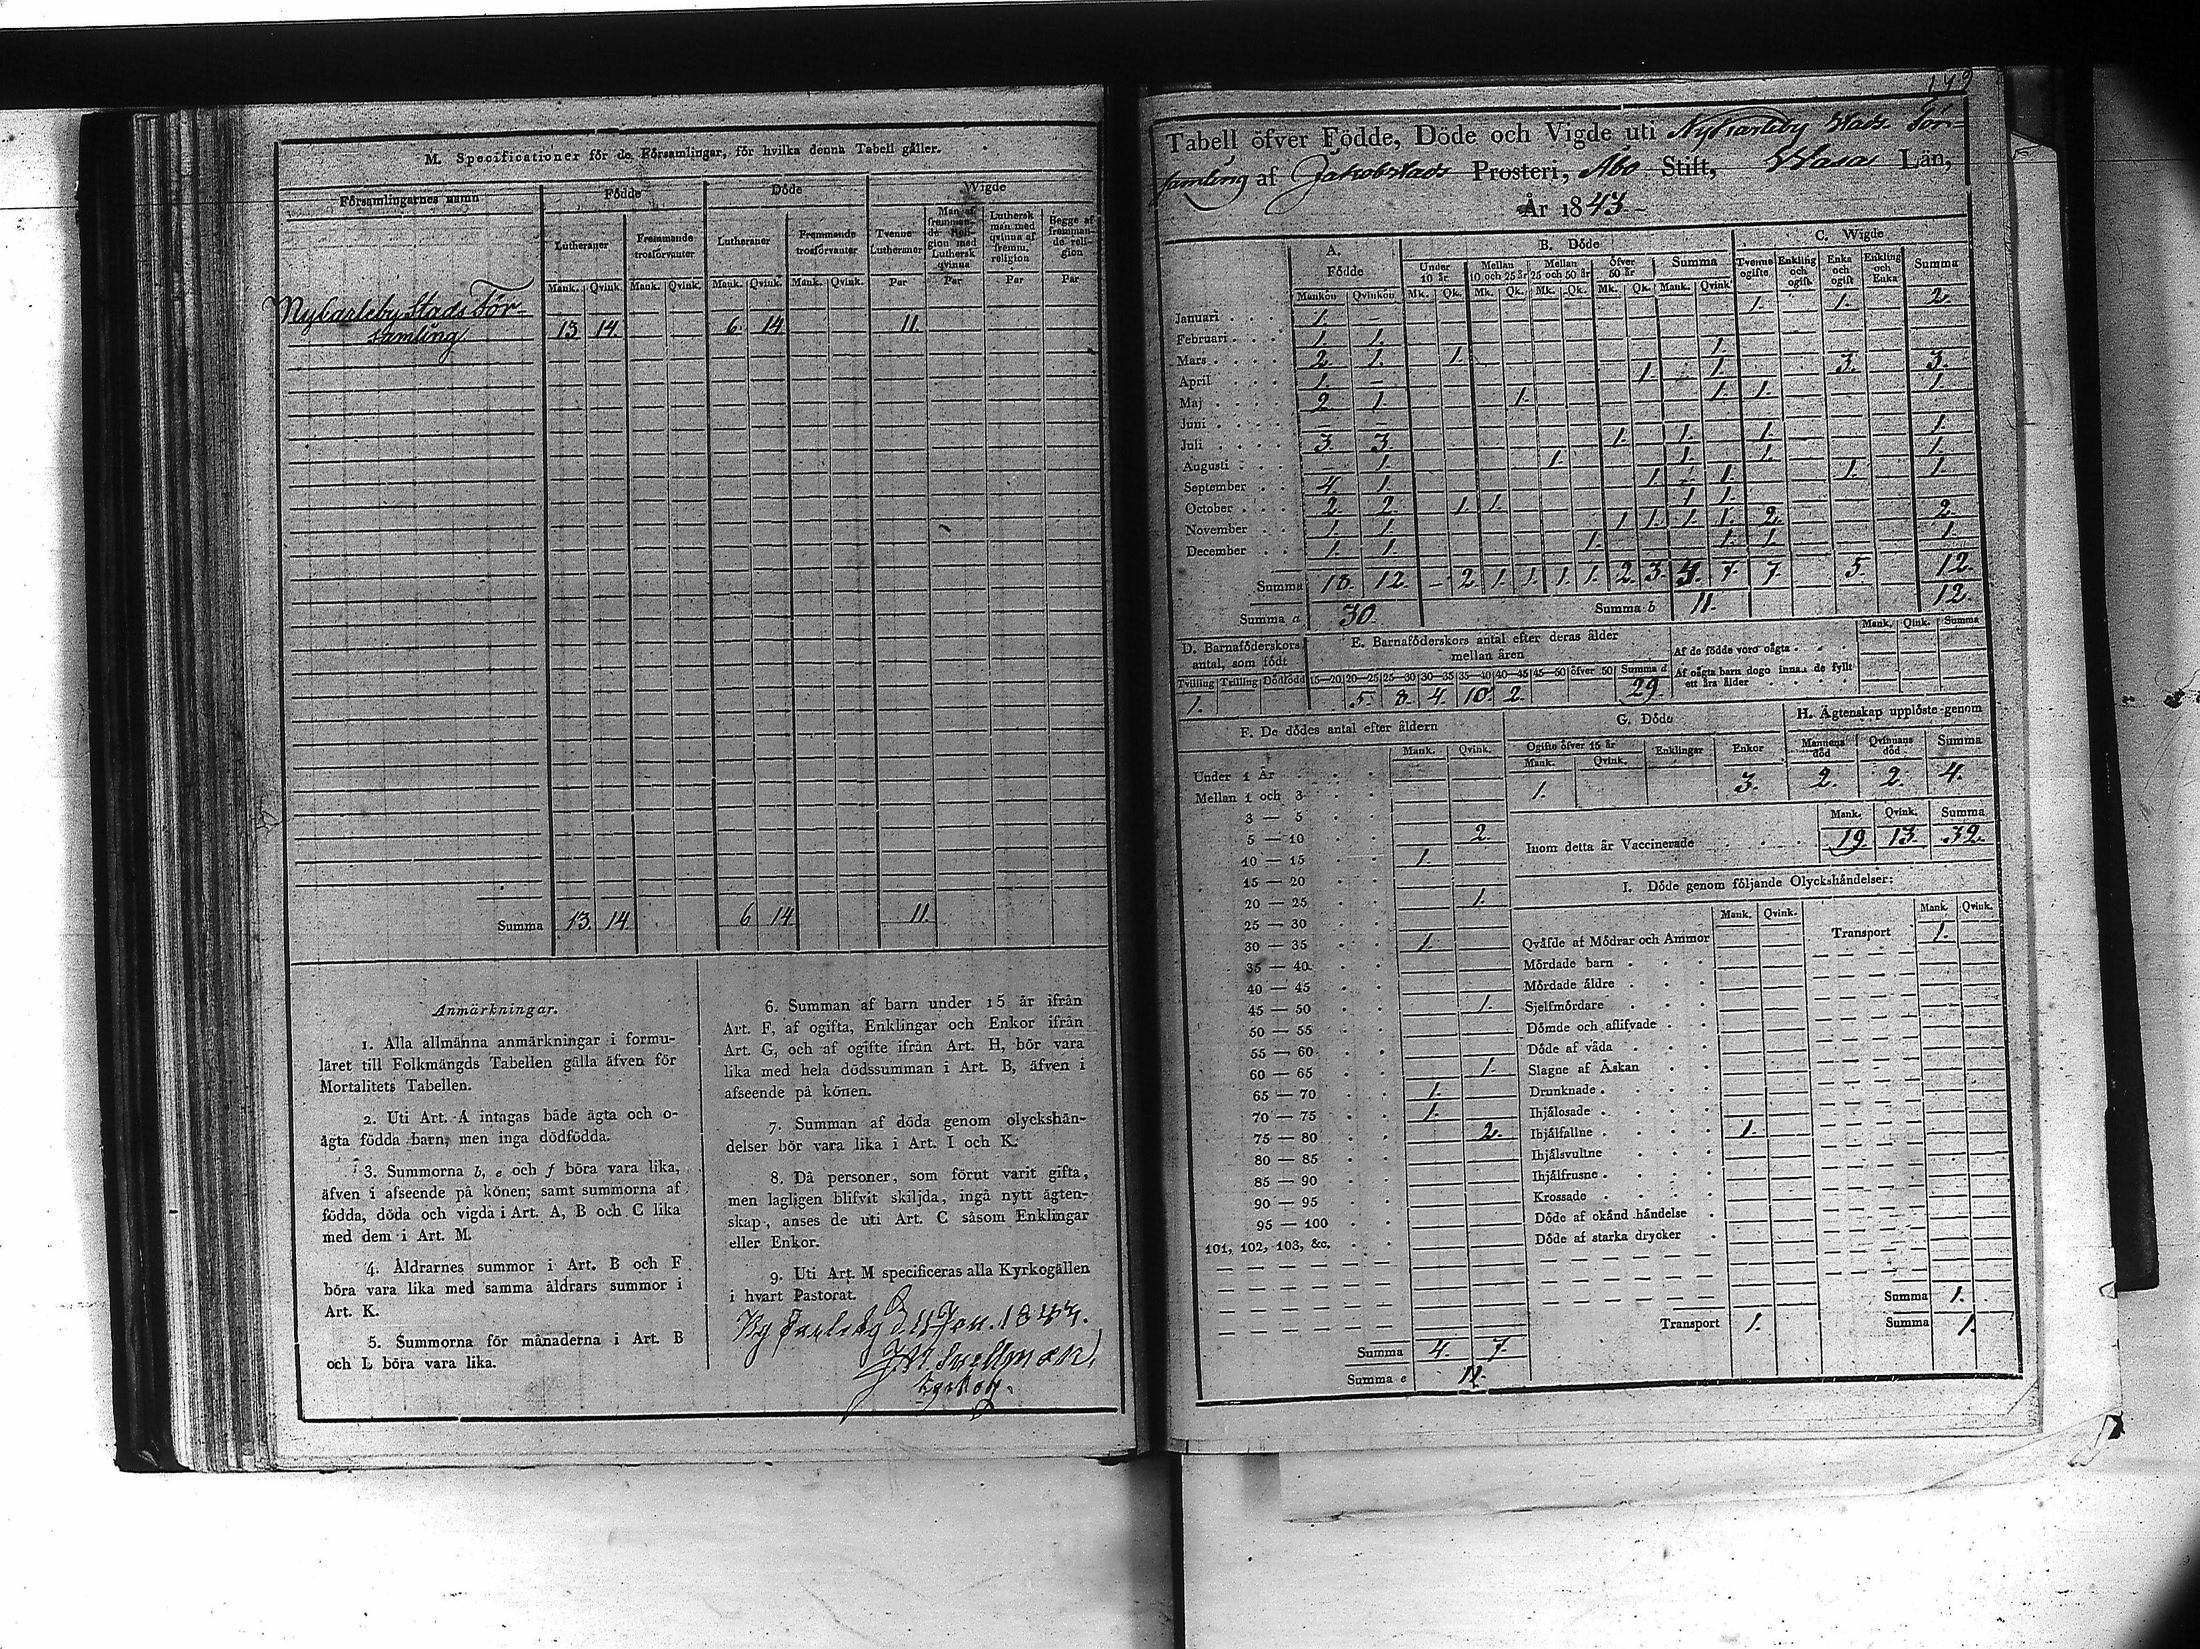 M. Specificationer för de Församlingar, för hvilka denna Tabell gäller.
Församlingarnes namn Födde Döde Wigde
Lutheraner Fremmande trosförvanter Lutheraner Fremmande trosförvanter Tvenne Lutheraner Man af fremmande Religion med Luthersk qvinna Luthersk man med qvinna af fremm. religion Begge af fremmande religion
Mank. Qvink. Mank. Qvink. Mank. Qvink. Mank. Qvink. Par Par Par Par
Nykarleby Stads För-
samling 13 14 6. 14 11.
Summa 13. 14. 6 14 11.
Anmärkningar.
1. Alla allmänna anmärkningar i formu-
läret till Folkmängds Tabellen gälla äfven för
Mortalitets Tabellen.
2. Uti Art. A intagas både ägta och o-
ägta födda barn, men inga dödfödda.
3. Summorna b, e och f böra vara lika,
äfven i afseende på könen; samt summorna af
födda, döda och vigda i Art. A, B och C lika
med dem i Art. M.
4. Åldrarnes summor i Art. B och F
böra vara lika med samma åldrars summor i
Art. K.
5. Summorna för månaderna i Art. B
och L böra vara lika.
6. Summan af barn under 15 år ifrån
Art. F, af ogifta, Enklingar och Enkor ifrån
Art. G, och af ogifte ifrån Art. H, bör vara
lika med hela dödssumman i Art. B, äfven i
afseende på könen.
7. Summan af döda genom olyckshän-
delser bör vara lika i Art. I och K.
8. Då personer, som förut varit gifta,
men lagligen blifvit skiljda, ingå nytt ägten-
skap, anses de uti Art. C såsom Enklingar
eller Enkor.
9. Uti Art. M specificeras alla Kyrkogällen
i hvart Pastorat.
Snellman
Tabell öfver Födde, Döde och Vigde uti Nykarleby Stads För-
samling af Jakobstads Prosteri, Åbo Stift, Wasa Län,
År 1843
A. Födde B. Döde C. Wigde
Under 10 år Mellan 10 och 25 år Mellan 25 och 50 år Öfver 50 år Summa Tvenne ogifte Enkling och ogift Enka och ogift Enkling och Enka Summa
Mankön Qvinkön Mk. Qk. Mk. Qk. Mk. Qk. Mk. Qk. Mank. Qvink.
Januari 1. – 1. 1. 2.
Februari 1. 1.
Mars 2 1. 1. 1.
April 1. – 1. 1. 3. 3.
Maj 2 1 1. 1. 1. 1.
Juni – –
Juli 3 3 1. 1. 1. 1.
Augusti – 1. 1. 1. 1. 1.
September 4. 1. 1. 1. 1. 1.
October 2 2 1. 1. 1 1.
November 1. 1. 1 1. 1. 1. 2. 2.
December 1. 1. 1. 1. 1. 1.
Summa 18. 12. – 2. 1. 1. 1. 1. 2. 3. 4. 7. 7. 5. 12.
Summa a 30. Summa b 11. 12.
D. Barnaföderskors antal, som födt
Tvilling Trilling Dödfödd
1.
E. Barnaföderskors antal efter deras ålder
mellan åren
15—20 20—25 25—30 30—35 35—40 40—45 45—50 öfver 50 Summa d
5. 8. 4. 10. 2. 29.
Mank. Qink. Summa
Af de födde voro oägta
Af oägta barn dogo innan de fyllt
ett års ålder
F. De dödes antal efter åldern
Mank. Qvink.
Under 1 År
Mellan 1 och 3
3 — 5
5 — 10 2.
10 — 15 1.
15 — 20
20 — 25 1.
25 — 30
30 — 35 1.
35 — 40
40 — 45
45 — 50 1.
50 — 55
55 — 60
60 — 65 1.
65 — 70 1.
70 — 75 1.
75 — 80 2.
80 — 85
85 — 90
90 — 95
95 — 100
101, 102, 103, &c.
Summa 4. 7.
Summa e 11.
G. Döde
Ogifte öfver 15 år Enklingar Enkor
Mank. Qvink.
1. 3.
H. Ägtenskap upplöste genom
Mannens död Qvinnans död Summa
2. 2. 4.
Mank. Qvink. Summa
Inom detta år Vaccinerade 19. 13. 32.
I. Döde genom följande Olyckshändelser:
Mank. Qvink. Mank. Qvink.
Qväfde af Mödrar och Ammor Transport 1.
Mördade barn
Mördade äldre
Sjelfmördare
Dömde och aflifvade
Döde af våda
Slagne af Åskan
Drunknade
Ihjälosade
Ihjälfallne 1.
Ihjälsvultne
Ihjälfrusne
Krossade
Döde af okänd händelse
Döde af starka drycker
Summa 1.
Transport 1. Summa 1.